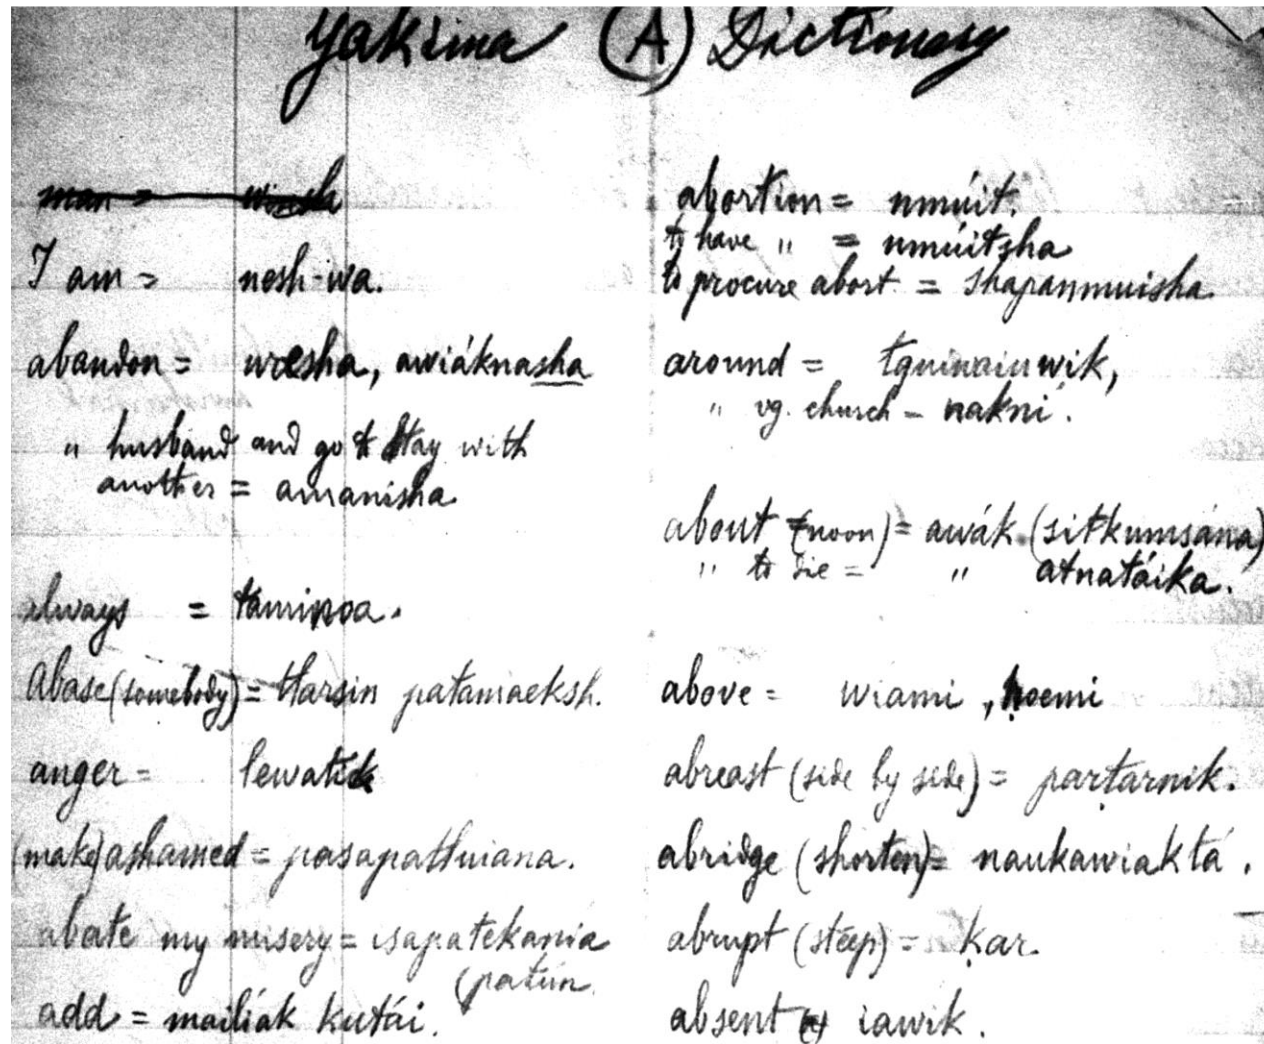 Yakima (A) Dictionary
man = winsh
I am = nesh-wa.
abandon = wresha, awiáknasha
" husband and go to stay with
another = amanisha.
always = táminwa.
Abase (somebody) = ttarsin patamaeksh.
anger = lewatish
(make) ashamed = pasapattwiana.
abate my misery = isapatekania
(patún.
add = mailiák kutái.
abortion = nmúit.
to have " = nmúitsha
to procure abort = shapanmuisha.
around = tguinaiuwik,
" vg. church - nakni.
about (noon) = awák (sitkumsána)
" to die = " atnatáika.
above = wiami, ḥoemi
abreast (side by side) = parṭarnik.
abridge (shorten) = naukawiaktá.
abrupt (steep) = ḳar.
absent = iawik.